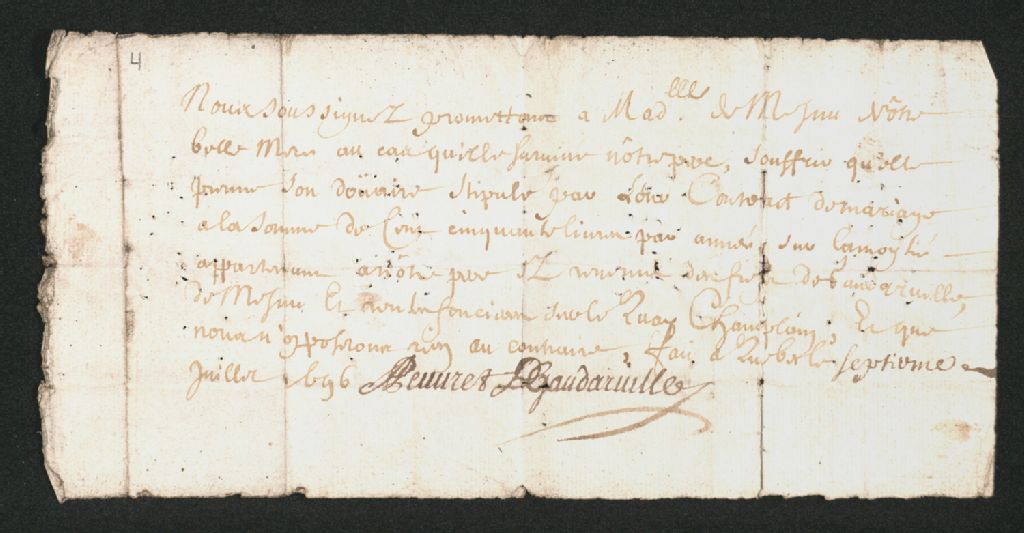 4
Nous soussignez promettons a Mad.lle de Mesnu Nôtre
belle Mere au cas qu'elle survive nôtre pere, souffrir qu'elle
prenne son doüaire stipulé par leur Contract de mariage
a la somme de Cent cinquante livres par année, sur la moytié
appartenant a nôtre pere et revenus des fiefs de Gaudarville,
de Mesnu Et rentes foncieres sur le Quay Champlain, Et que
nous n'exposerons rien au contraire, fait a Quebec le septieme
Juillet 1696 Peuuret DGaudaruille